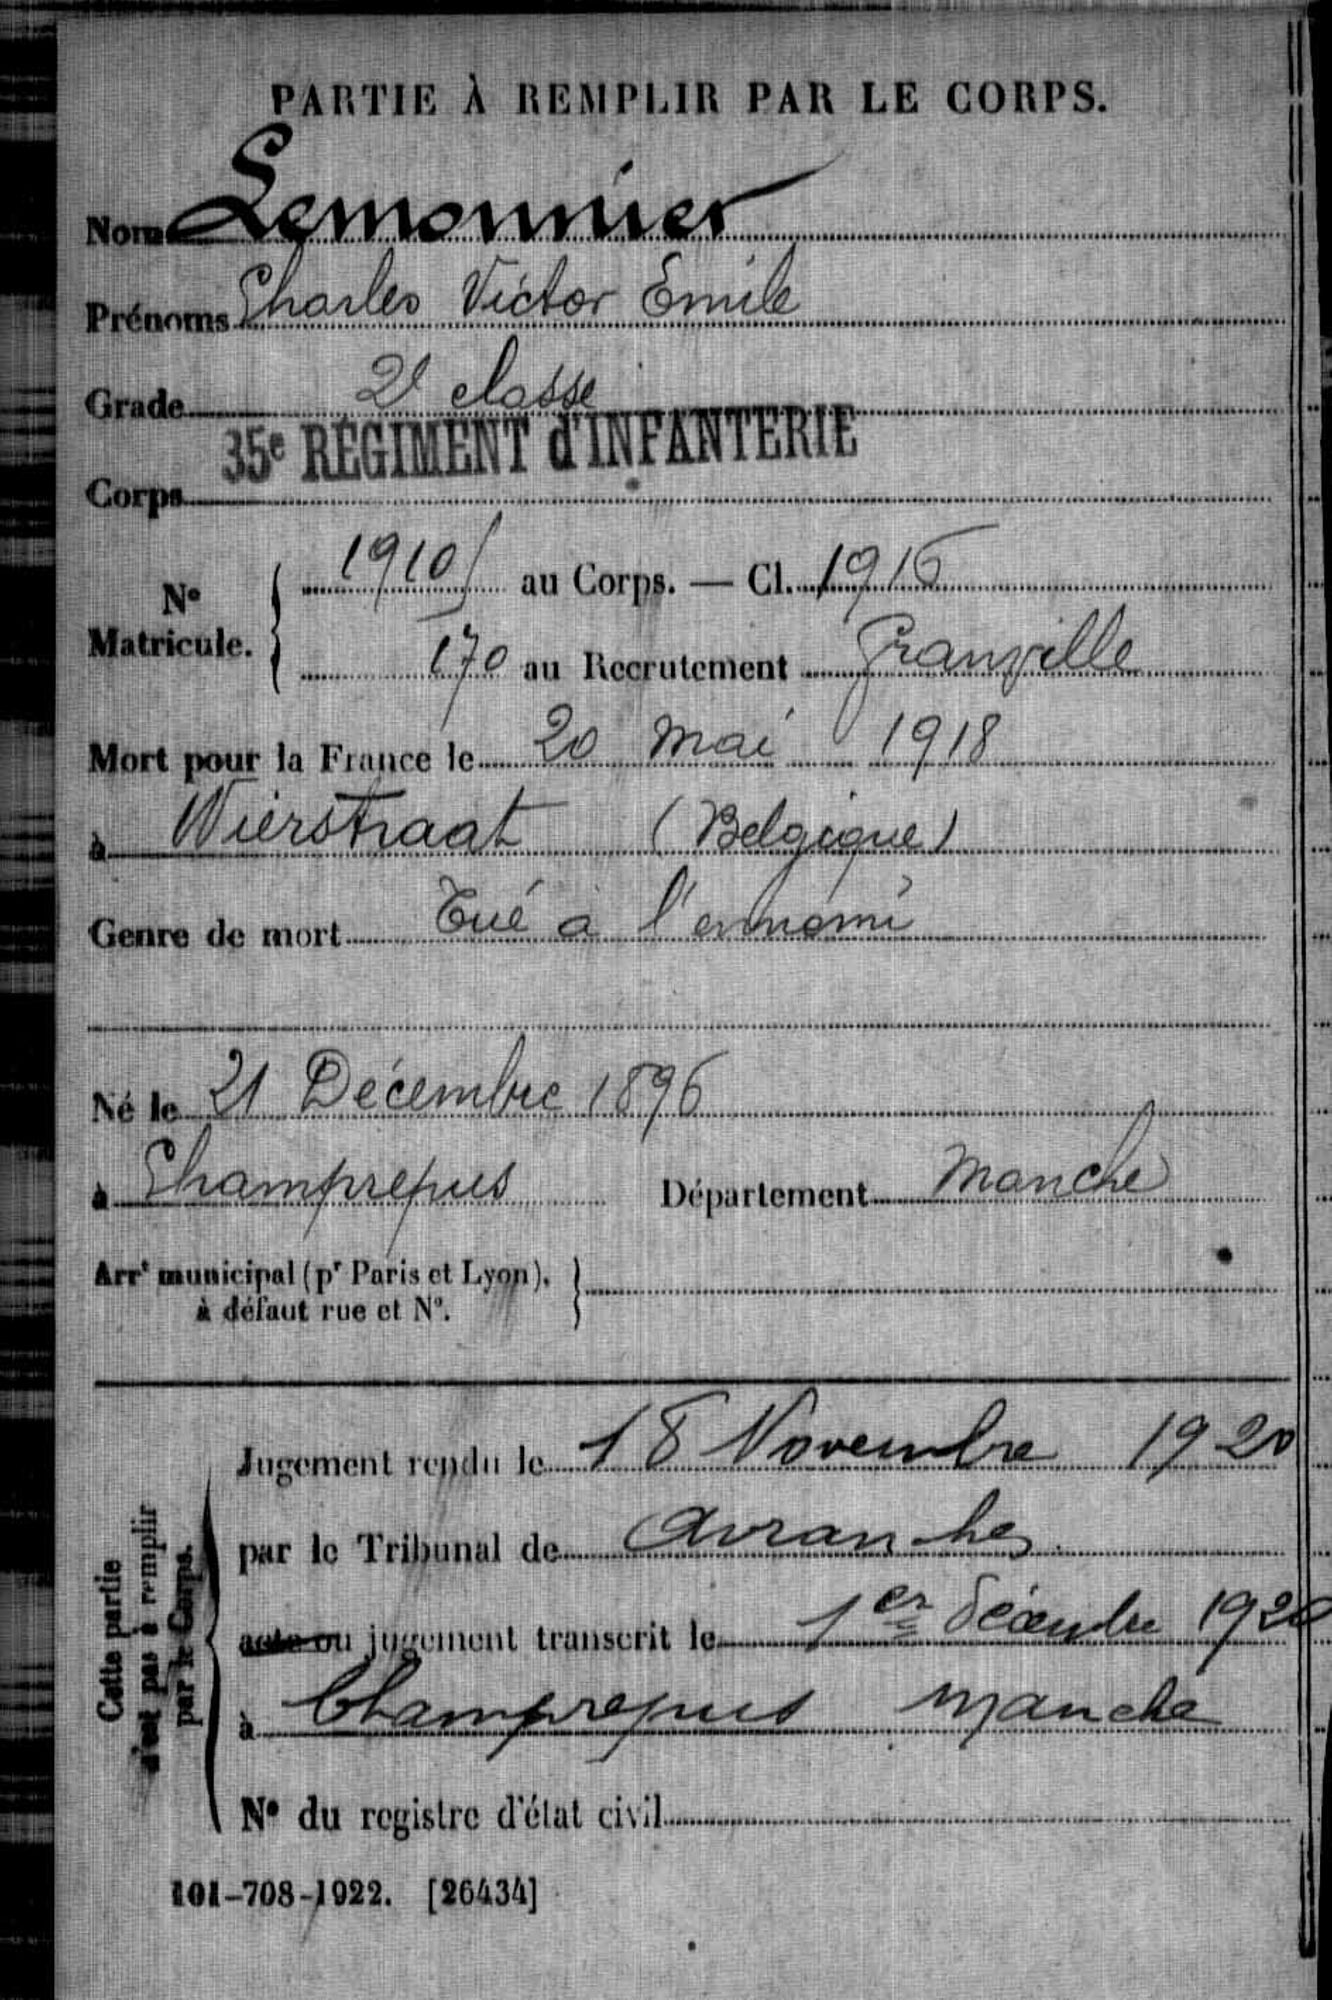 PARTIE À REMPLIR PAR LE CORPS.
Nom Lemonnier
Prénoms Charles Victor Emile
Grade 2e classe
35e RÉGIMENT d'INFANTERIE
Corps
N° Matricule. { 19101 au Corps. — Cl. 1916
170 au Recrutement Granville
Mort pour la France le 20 Mai 1918
à Wierstraat (Belgique)
Genre de mort Tué à l'ennemi
Né le 21 Décembre 1896
à Champrepus Département Manche
Arrt municipal (pr Paris et Lyon), }
à défaut rue et N°.
Cette partie
n'est pas à remplir
par le Corps.
Jugement rendu le 18 Novembre 1920
par le Tribunal de Avranches
acte ou jugement transcrit le 1er décembre 1920
à Champrepus Manche
N° du registre d'état civil
101-708-1922. [26434]